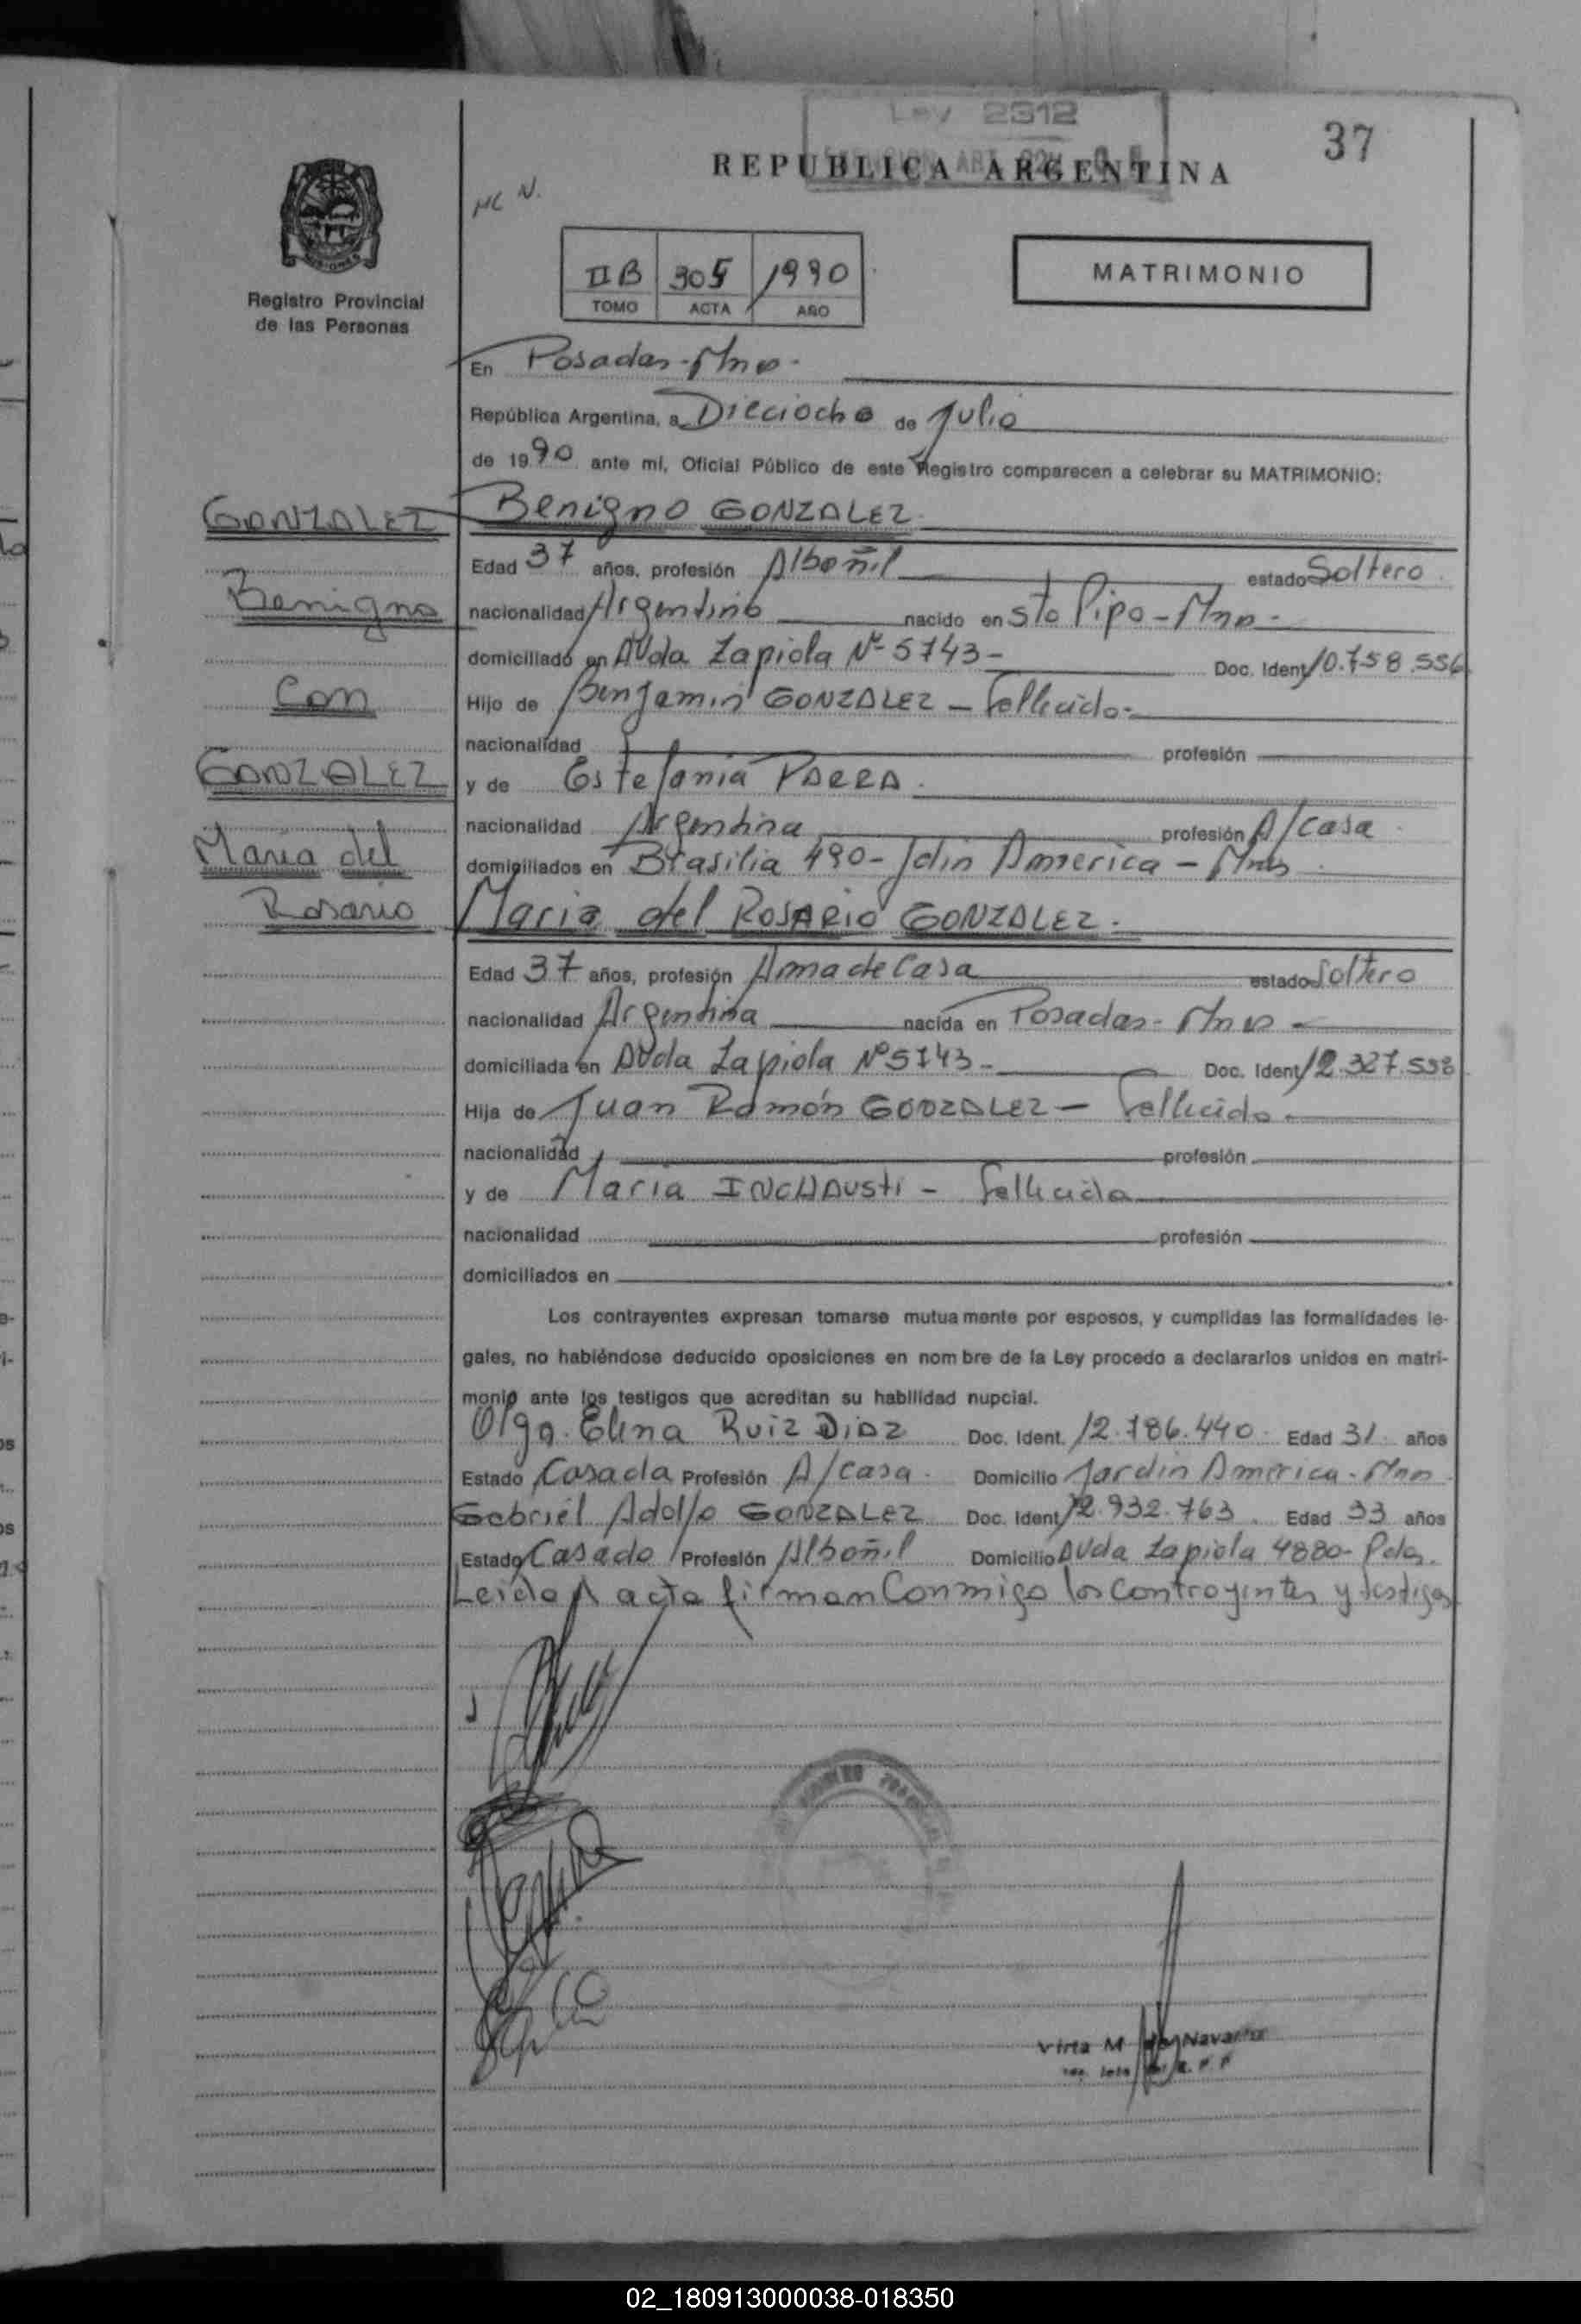 Ley 2312
37
REPUBLICA ARGENTINA
MC N.
IIB 305 1990
TOMO ACTA AÑO
MATRIMONIO
MISIONES
Registro Provincial
de las Personas
En Posadas-Mnes-
República Argentina, a Dieciocho de Julio
de 1990 ante mi, Oficial Público de este Registro comparecen a celebrar su MATRIMONIO:
GONZALEZ
Benigno
Con
GONZALEZ
Maria del
Rosario
Benigno GONZALEZ
Edad 37 años, profesión Albañil estado Soltero
nacionalidad Argentino nacido en Sto Pipo-Mnes-
domiciliado en Avda Lapiola Nº 5743- Doc. Ident 10.758.556
Hijo de Benjamin GONZALEZ - Fallecido-
nacionalidad profesión
y de Estefania PARRA.
nacionalidad Argentina profesión A/casa
domiciliados en Brasilia 490- Jdin America - Mnes
Maria del ROSARIO GONZALEZ.
Edad 37 años, profesión Ama de Casa estado Soltero
nacionalidad Argentina nacida en Posadas- Mnes -
domiciliada en Avda Lapiola Nº 5743- Doc. Ident 12.327.558
Hija de Juan Ramón GONZALEZ - Fallecido.
nacionalidad profesión
y de Maria INCHAUSti - Fallecida
nacionalidad profesión
domiciliados en
Los contrayentes expresan tomarse mutuamente por esposos, y cumplidas las formalidades le-
gales, no habiéndose deducido oposiciones en nombre de la Ley procedo a declararlos unidos en matri-
monio ante los testigos que acreditan su habilidad nupcial.
Olga Elena RUIZ DIAZ Doc. Ident. 12.786.440 Edad 31 años
Estado Casada Profesión A/casa. Domicilio Jardin America-Mnes
Gabriel Adolfo GONZALEZ Doc. Ident 12.932.763 Edad 33 años
Estado Casado Profesión Albañil Domicilio Avda Lapiola 4880- Pdas.
Leida A acta firman Conmigo los Contrayentes y testigos
Virta M Navarro
02_180913000038-018350